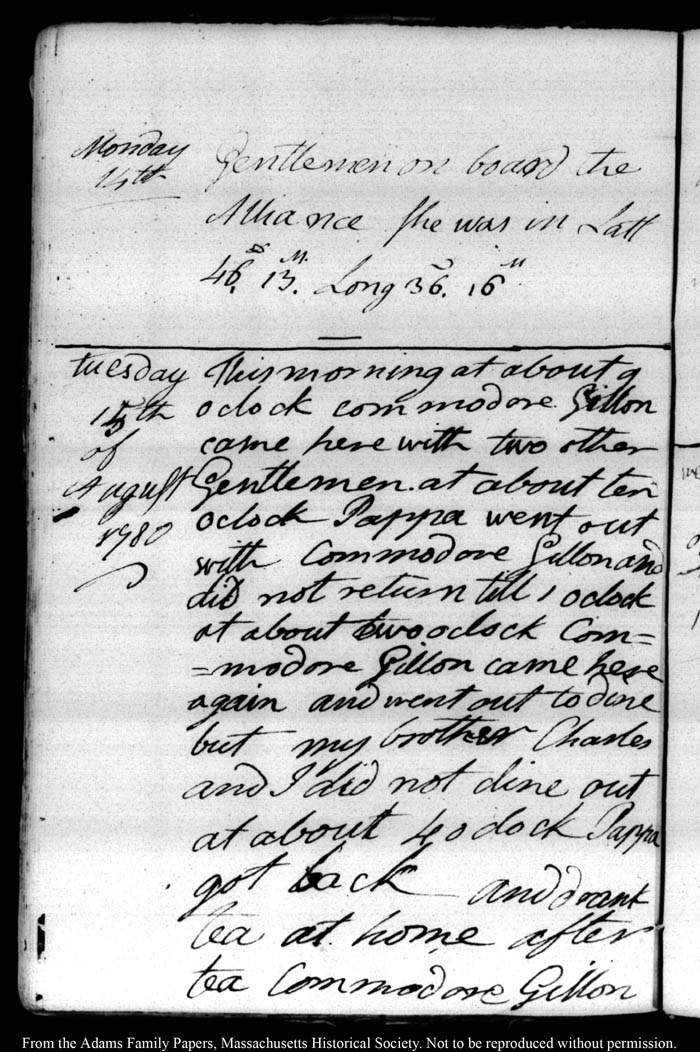 Monday
14th
Gentlemen on board the
Alliance she was in Latt
46.D 13.M Long 36.D 16M
tuesday
15th
of
August
1780
This morning at about 9
oclock commodore Gillon
came here with two other
Gentlemen. at about ten
oclock Pappa went out
with Commodore Gillon and
did not return till 1 oclock
at about two oclock Com=
=modore Gillon came here
again and went out to dine
but my brother Charles
and I did not dine out
at about 4 oclock Pappa
got back and drank
tea at home after
tea Commodore Gillon
From the Adams Family Papers, Massachusetts Historical Society. Not to be reproduced without permission.